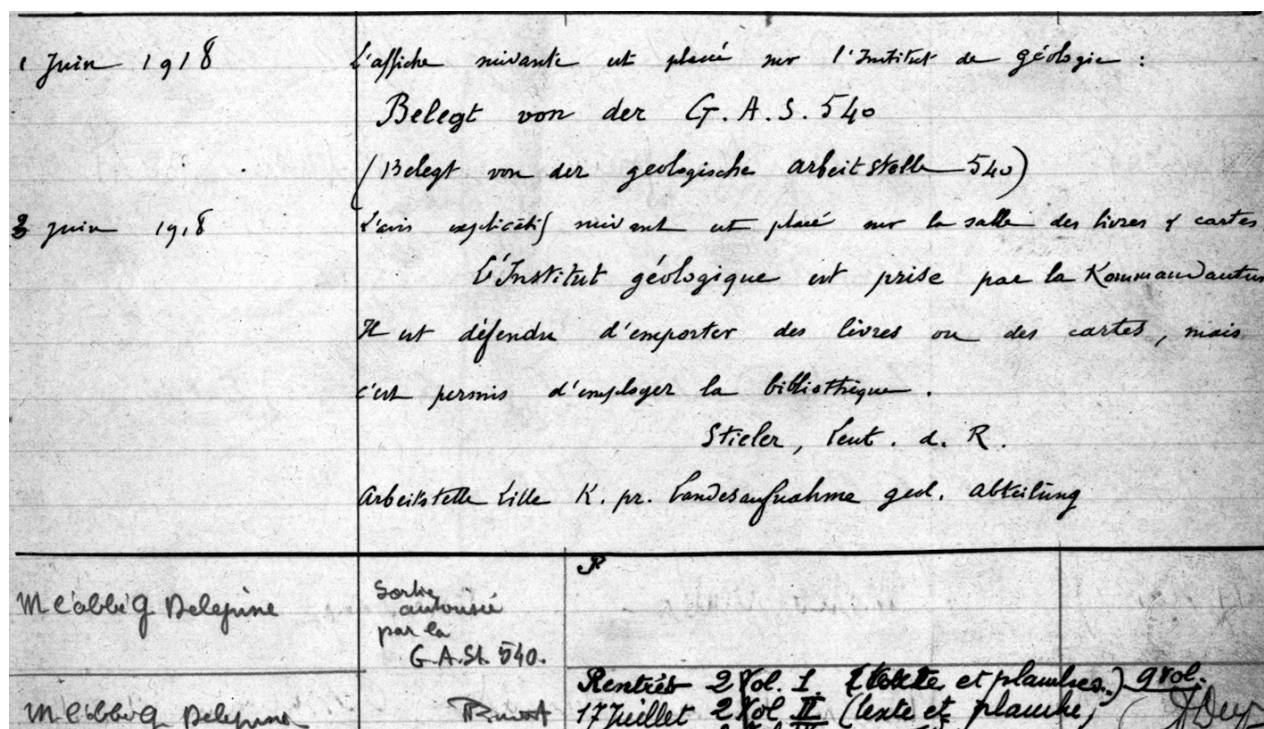 1 Juin 1918 L'affiche suivante est placé sur l'Institut de géologie :
Belegt von der G. A. S. 540
(Belegt von der geologische arbeitstelle 540)
3 juin 1918 L'avis explicatif suivant est placé sur la salle des livres & cartes
L'Institut géologique est prise par la Kommandantur
Il est défendu d'emporter des livres ou des cartes, mais
c'est permis d'employer la bibliothèque.
Stieler, leut. d. R.
Arbeitstelle Lille K. pr. Landesaufnahme geol. Abteilung
M l'abbé G Delepine Sortie
autorisée
par la
G.A.St. 540.
Rentrés 2 Vol. I. (texte et planches) 9 vol.
M l'abbé G Delepine 17 Juillet 2 Vol II (texte et planche)